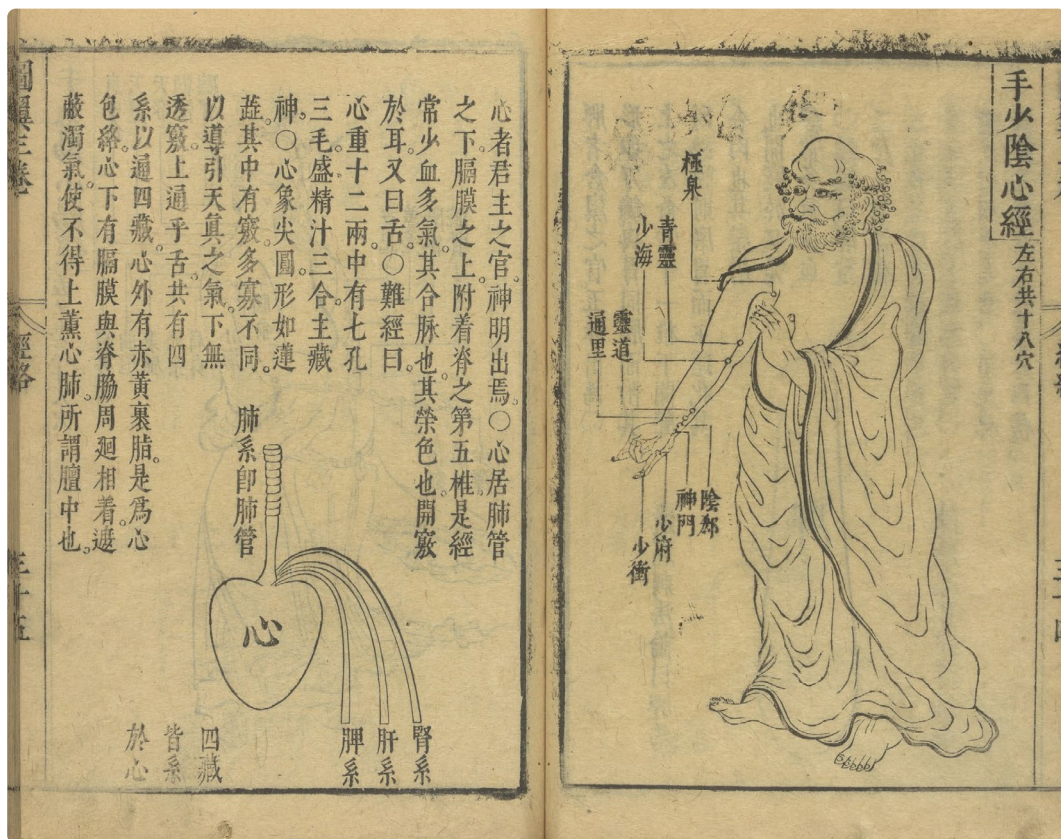 手少陰心經
左右共十八穴
極泉
青靈
少海
靈道
通里
陰郄
神門
少府
少衝
心者君主之官神明出焉○心居肺管
之下膈膜之上附着脊之第五椎是經
常少血多氣其合脉也其榮色也開竅
於耳又曰舌○難經曰
心重十二兩中有七孔
三毛盛精汁三合主藏
神○心象尖圓形如蓮
蕋其中有竅多寡不同
以導引天眞之氣下無
透竅上通乎舌共有四
系以通四藏心外有赤黃裹脂是爲心
包絡心下有膈膜與脊脇周廻相着遮
蔽濁氣使不得上薰心肺所謂膻中也
肺系卽肺管
心
腎系
肝系
脾系
四藏
皆系
於心
經絡
三十五